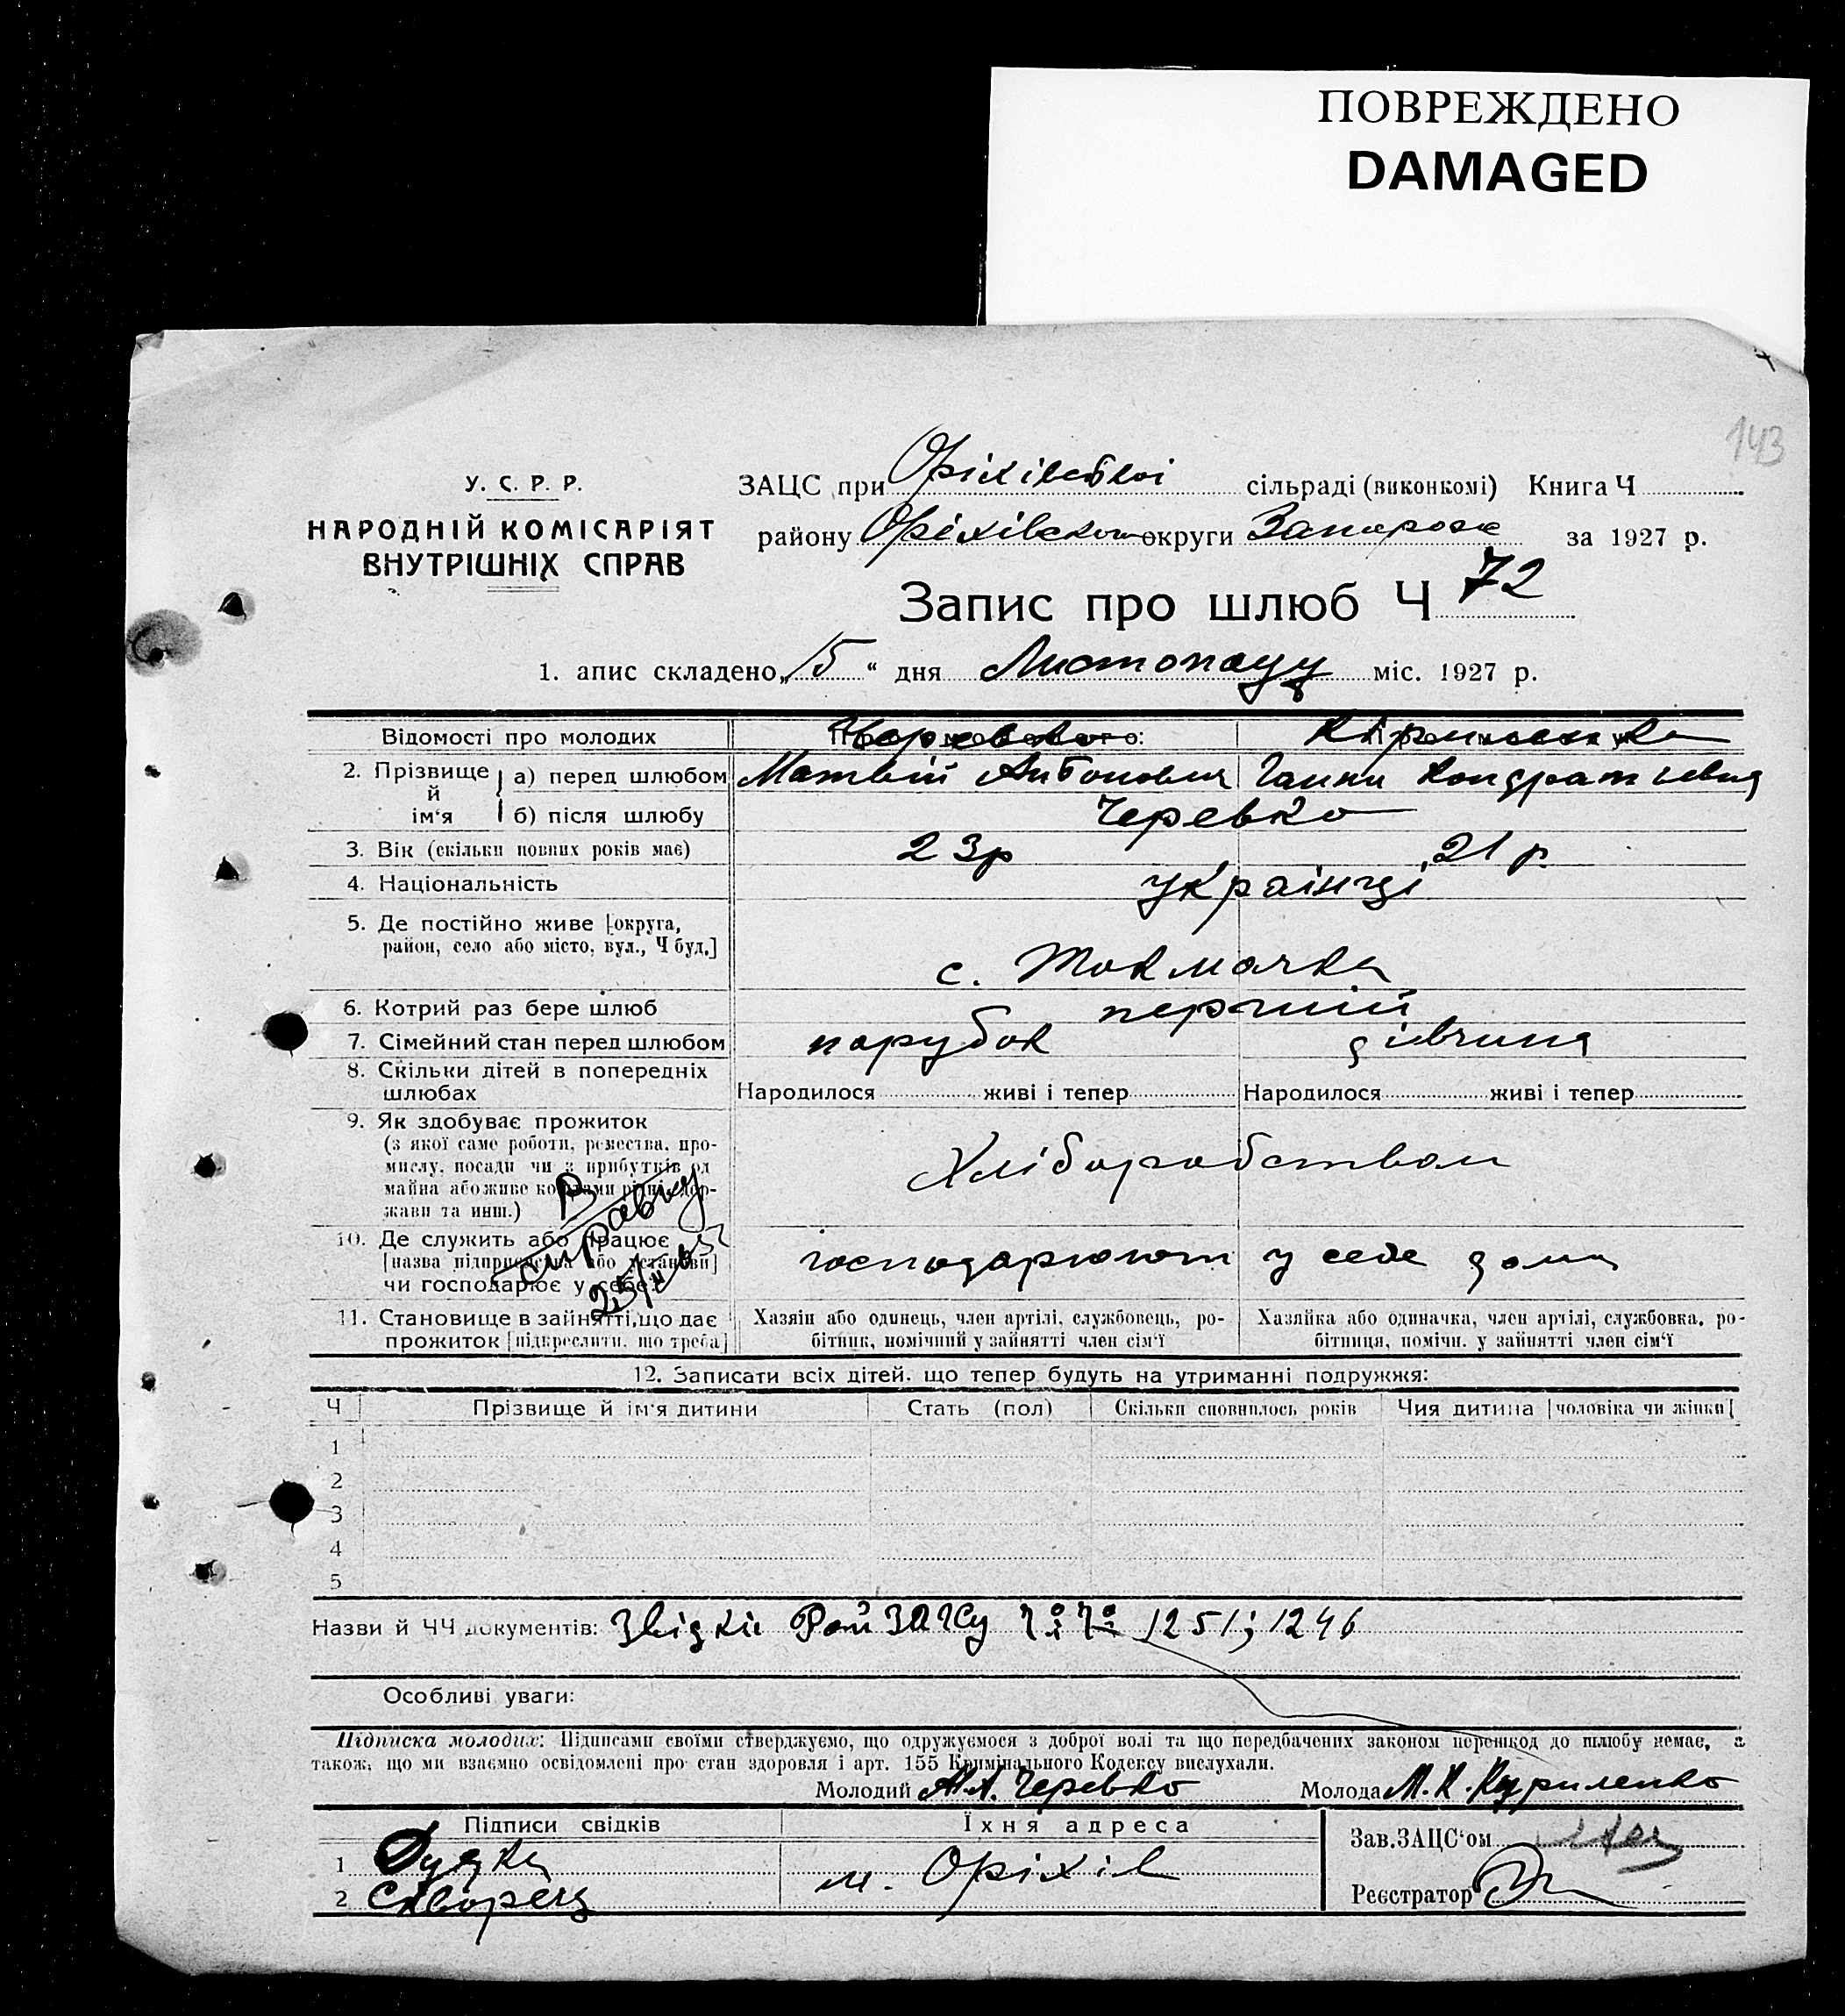 ПОВРЕЖДЕНО
DAMAGED
143
У. С. Р. Р.
НАРОДНІЙ КОМІСАРІЯТ
ВНУТРІШНІХ СПРАВ
ЗАЦС при Оріхівській сільраді (виконкомі) Книга Ч
району Оріхівському округи Запорозь за 1927 р.
Запис про шлюб Ч 72
1. апис складено „15“ дня Листопаду міс. 1927 р.
Відомості про молодих
Черевко
2. Прізвище й ім‘я
а) перед шлюбом Матвій Антонович Ганни Кондратієвна
б) після шлюбу Черевко
3. Вік (скільки повних років має) 23р 21 р.
4. Національність українці
5. Де постійно живе [округа,
район, село або місто, вул., Ч буд.]
с. Токмачка
6. Котрий раз бере шлюб перший
7. Сімейний стан перед шлюбом парубок дівчина
8. Скільки дітей в попередніх
шлюбах Народилося живі і тепер Народилося живі і тепер
9. Як здобуває прожиток
(з якої саме роботи, ремества, про-
мислу, посади чи з прибутків од
майна або живе коштами рідні, дер-
жави та инш.)
Хліборобством
В справку
25/
10. Де служить або працює
[назва підприємства або установи]
чи господарює у себе?
господарюють у себе дома
11. Становище в зайнятті, що дає
прожиток [підкреслити, що треба]
Хазяін або одинець, член артілі, службовець, ро-
бітник, помічний у зайнятті член сім‘ї
Хазяйка або одиначка, член артілі, службовка, ро-
бітниця, помічн. у зайнятті член сім‘ї
12. Записати всіх дітей, що тепер будуть на утриманні подружжя:
Ч Прізвище й ім‘я дитини Стать (пол) Скільки сповнилось років Чия дитина [чоловіка чи жінки[
1
2
3
4
5
Назви й ЧЧ документів: Звідки РайЗАЦСу 1251; 1246
Особливі уваги:
Підписка молодих: Підписами своїми стверджуємо, що одружуємося з доброї волі та що передбачених законом перешкод до шлюбу немає, а
також, що ми взаємно освідомлені про стан здоровля і арт. 155 Кримінального Кодексу вислухали.
Молодий М.А. Черевко Молода М. К. Куриленко
Підписи свідків Їхня адреса
1 Дудка
2 Скворець
м. Оріхів
Зав. ЗАЦС‘ом
Реєстратор